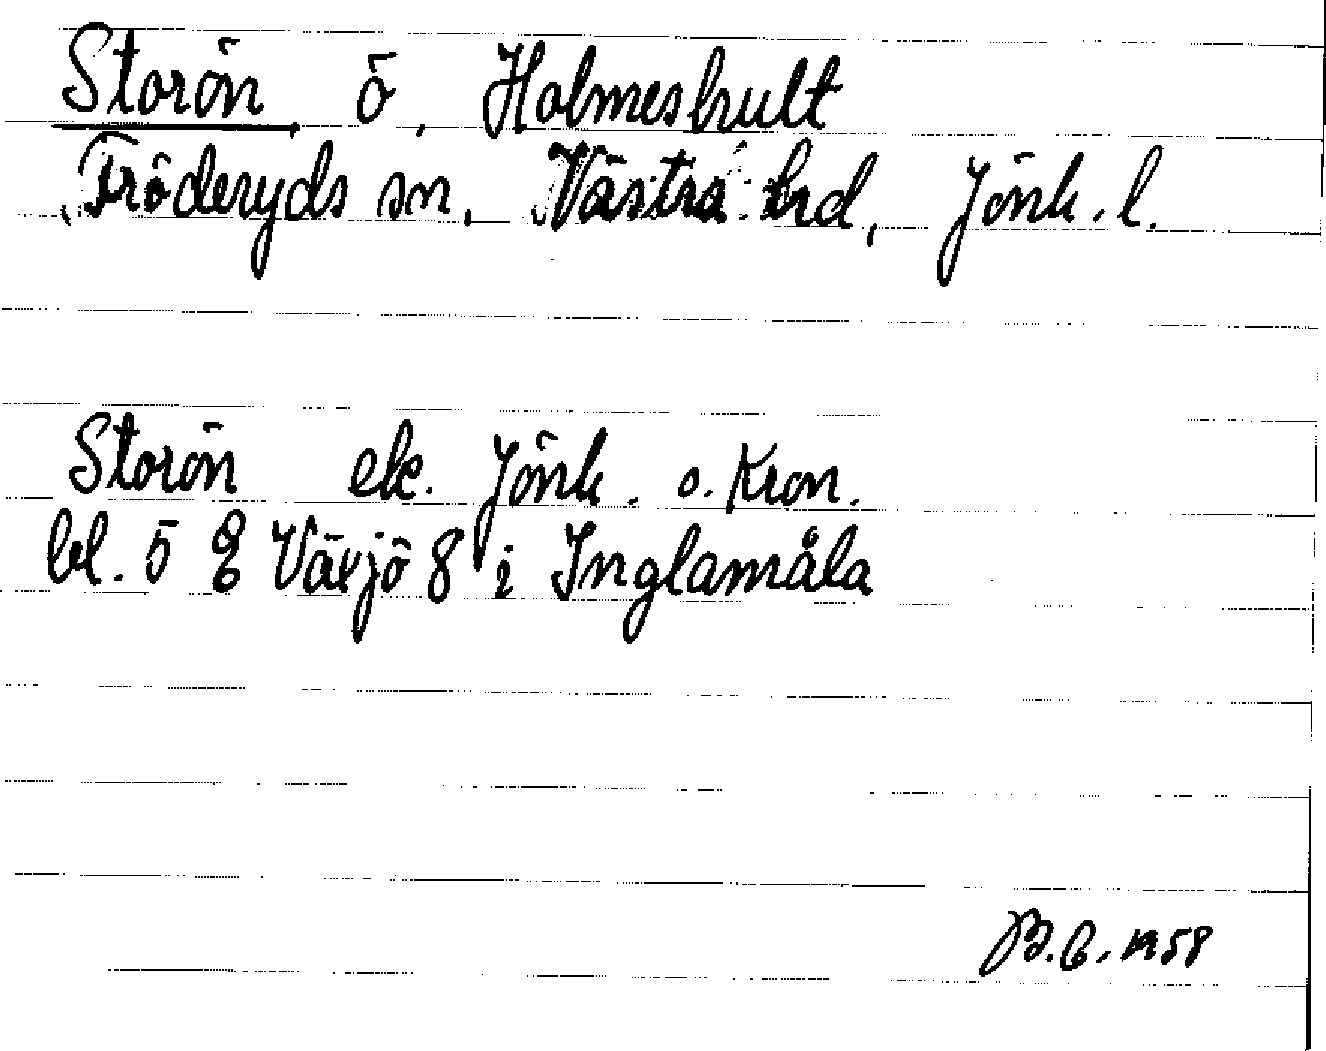 Storön ö, Holmeshult
Fröderyds sn, Västra hrd, Jönk. l.
Storön ek. Jönk. o. Kron.
bl. 5 & Växjö 8 i Inglamåla
B.C. 1958